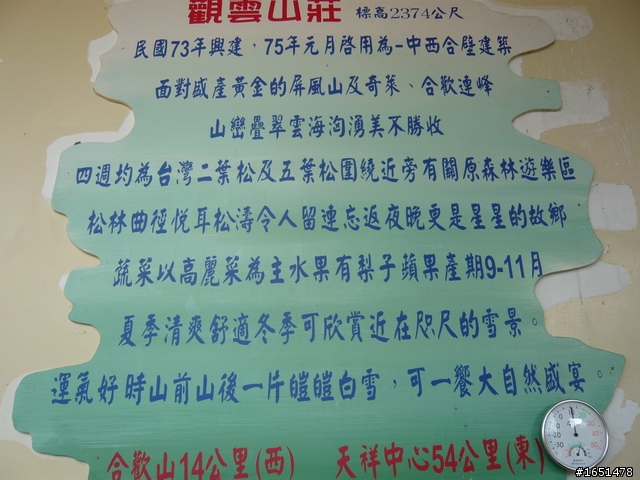 觀雲山莊 標高2374公尺
民國73年興建，75年元月啓用為一中西合壁建築
面對盛產黃金的屏風山及奇萊、合歡連峰
山巒疊翠雲海洶湧美不勝收
四週均為台灣二葉松及五葉松圍繞近旁有關原森林遊樂區
松林曲徑悅耳松濤令人留連忘返夜晚更是星星的故鄉
蔬菜以高麗菜為主水果有梨子蘋果產期9-11月
夏季清爽舒適冬季可欣賞近在咫尺的雪景。
運氣好時山前山後一片皚皚白雪，可一饗大自然盛宴。
合歡山14公里(西) 天祥中心54公里(東)
#1651478